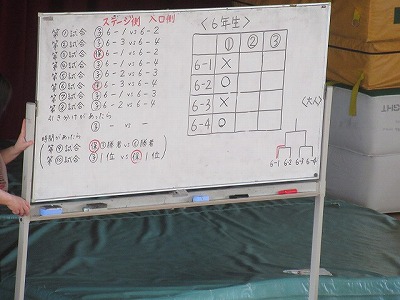 ステージ側 入口側
第①試合 ③ 6-1 vs 6-2
第②試合 ③ 6-3 vs 6-4
第③試合 6-1 vs 6-2
第④試合 ③ 6-3 vs 6-4
第⑤試合 ③ 6-2 vs 6-3
第⑥試合 6-3 vs 6-4
第⑦試合 6-1 vs 6-3
第⑧試合 ③ 6-2 vs 6-4
引き分けがあったら
③ - vs -
時間があったら
第⑨試合 勝者 vs 勝者
第⑩試合 1位 vs 1位
〈6年生〉
① ② ③
6-1 ×
6-2 ○
6-3 ×
6-4 ○
〈大人〉
6-1 6-2 6-3 6-4